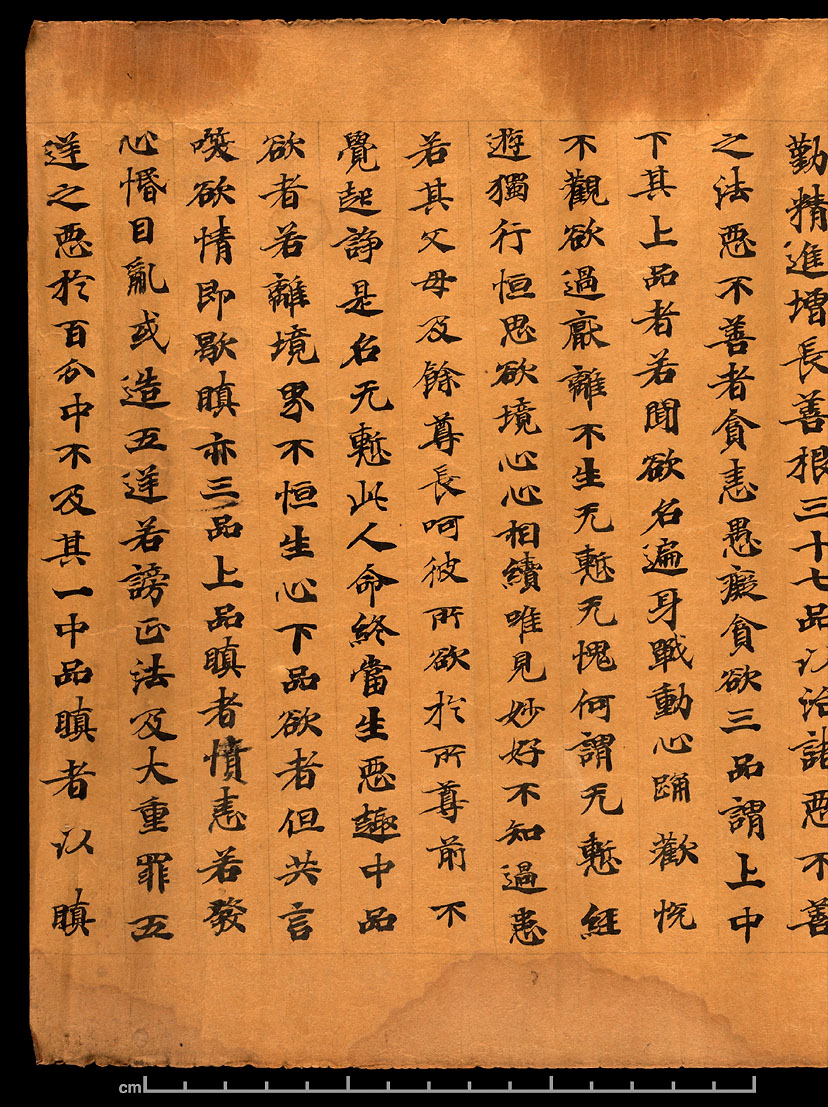 勤精進增長善根三十七品以治諸惡不善
之法惡不善者貪恚愚癡貪欲三品謂上中
下其上品者若聞欲名遍身戰動心踊歡悅
不觀欲過厭離不生无慙无愧何謂无慙經
遊獨行恒思欲境心心相續唯見妙好不知過患
若其父母及餘尊長呵彼所欲於所尊前不
覺起諍是名无慙此人命終當生惡趣中品
欲者若離境界不恒生心下品欲者但共言
唉欲情即歇瞋亦三品上品瞋者憤恚若發
心惛目亂或造五逆若謗正法及大重罪五
逆之惡於百分中不及其一中品瞋者以瞋
cm